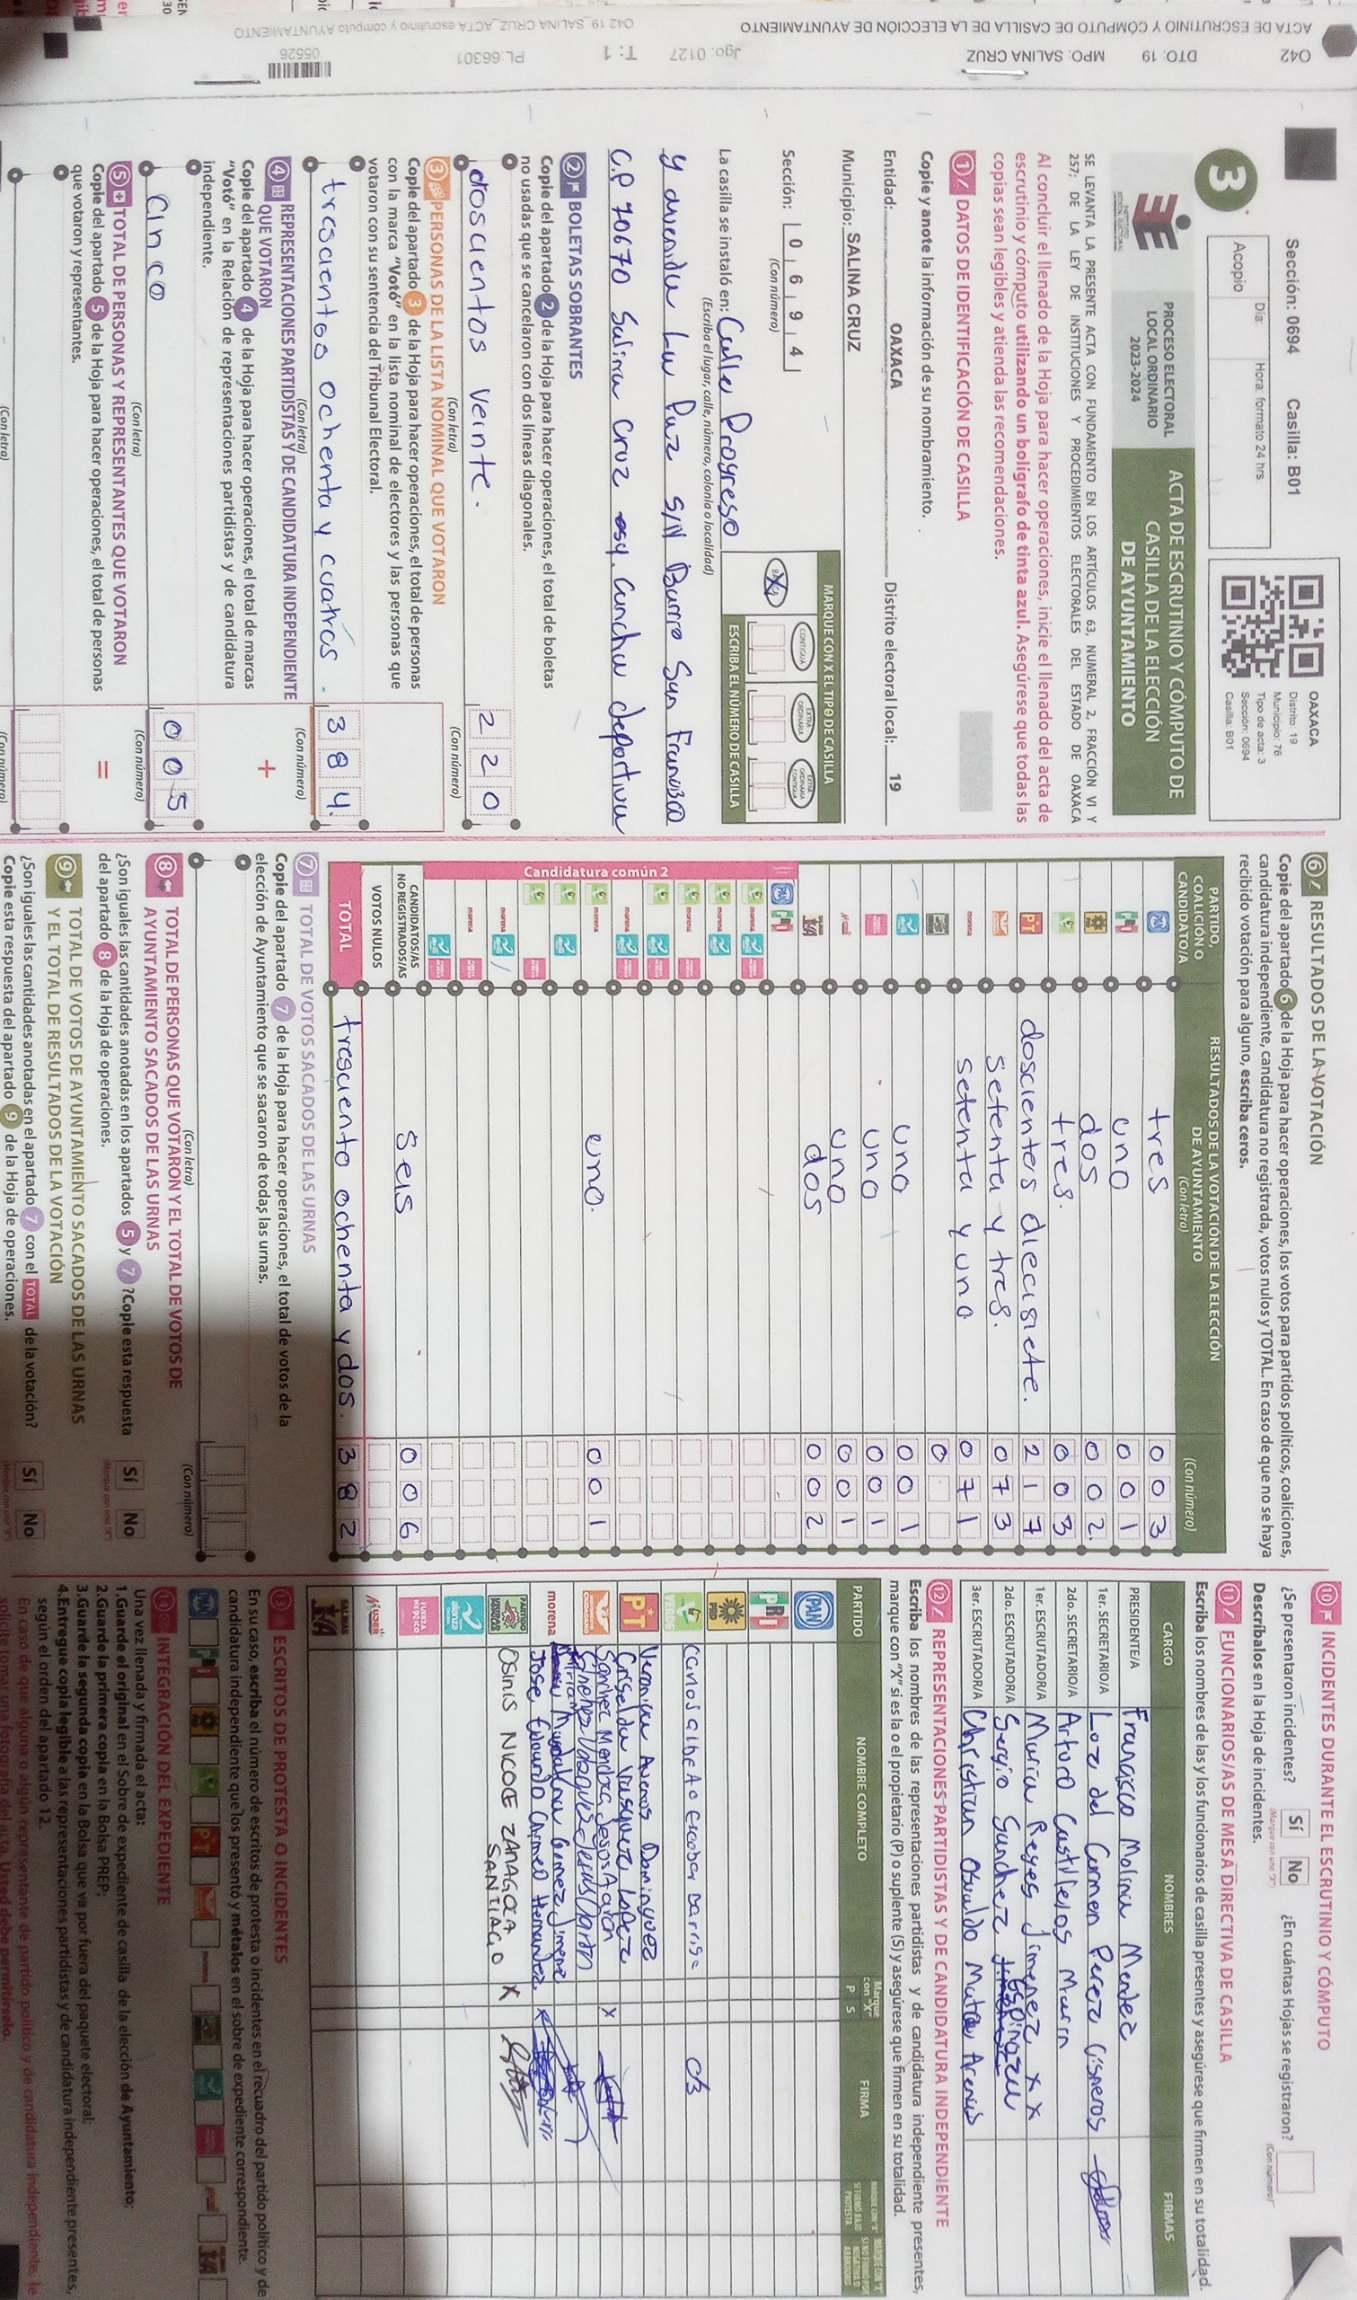 ACTA DE ESCRUTINIO Y CÓMPUTO DE CASILLA DE LA ELECCIÓN DE AYUNTAMIENTO
O42 DTO. 19 MPO. SALINA CRUZ
Jgo: 0127 T: 1 PL.66301 05526
O42 19 SALINA CRUZ_ACTA escrutinio y computo AYUNTAMIENTO
Sección: 0694 Casilla: B01
3
Día: Hora: formato 24 hrs
Acopio
OAXACA
Distrito: 19
Municipio: 76
Tipo de acta: 3
Sección: 0694
Casilla: B01
PROCESO ELECTORAL
LOCAL ORDINARIO
2023-2024
ACTA DE ESCRUTINIO Y CÓMPUTO DE
CASILLA DE LA ELECCIÓN
DE AYUNTAMIENTO
SE LEVANTA LA PRESENTE ACTA CON FUNDAMENTO EN LOS ARTÍCULOS 63, NUMERAL 2, FRACCIÓN VI Y
257; DE LA LEY DE INSTITUCIONES Y PROCEDIMIENTOS ELECTORALES DEL ESTADO DE OAXACA
Al concluir el llenado de la Hoja para hacer operaciones, inicie el llenado del acta de
escrutinio y cómputo utilizando un bolígrafo de tinta azul. Asegúrese que todas las
copias sean legibles y atienda las recomendaciones.
1 DATOS DE IDENTIFICACIÓN DE CASILLA
Copie y anote la información de su nombramiento.
Entidad: OAXACA Distrito electoral local: 19
Municipio: SALINA CRUZ
Sección: 0 6 9 4
(Con número)
MARQUE CON X EL TIPO DE CASILLA
CONTIGUA
EXTRA ORDINARIA
EXTRA ORDINARIA CONTIGUA
ESCRIBA EL NÚMERO DE CASILLA
La casilla se instaló en: Calle Progreso
(Escriba el lugar, calle, número, colonia o localidad)
y avenida La Paz S/N Barrio San Francisco
C.P 70670 Salina Cruz Cancha deportiva
2 BOLETAS SOBRANTES
Copie del apartado 2 de la Hoja para hacer operaciones, el total de boletas
no usadas que se cancelaron con dos líneas diagonales.
doscientos veinte. 2 2 0
(Con letra) (Con número)
3 PERSONAS DE LA LISTA NOMINAL QUE VOTARON
Copie del apartado 3 de la Hoja para hacer operaciones, el total de personas
con la marca "Votó" en la lista nominal de electores y las personas que
votaron con su sentencia del Tribunal Electoral.
trescientos ochenta y cuatros. 3 8 4.
(Con letra) (Con número)
4 REPRESENTACIONES PARTIDISTAS Y DE CANDIDATURA INDEPENDIENTE
QUE VOTARON
Copie del apartado 4 de la Hoja para hacer operaciones, el total de marcas
"Votó" en la Relación de representaciones partidistas y de candidatura
independiente.
+
Cinco 0 0 5
(Con letra) (Con número)
5 TOTAL DE PERSONAS Y REPRESENTANTES QUE VOTARON
Copie del apartado 5 de la Hoja para hacer operaciones, el total de personas
que votaron y representantes.
=
(Con letra) (Con número)
6 RESULTADOS DE LA VOTACIÓN
Copie del apartado 6 de la Hoja para hacer operaciones, los votos para partidos políticos, coaliciones,
candidatura independiente, candidatura no registrada, votos nulos y TOTAL. En caso de que no se haya
recibido votación para alguno, escriba ceros.
PARTIDO,
COALICIÓN O
CANDIDATO/A
RESULTADOS DE LA VOTACIÓN DE LA ELECCIÓN
DE AYUNTAMIENTO
(Con letra) (Con número)
PAN tres 0 0 3
PRI uno 0 0 1
dos 0 0 2.
tres. 0 0 3
PT doscientos diecisiete. 2 1 7
setenta y tres. 0 7 3
morena setenta y uno 0 7 1
0
uno 0 0 1
uno 0 0 1
uno 0 0 1
dos 0 0 2
Candidatura común 2
uno. 0 0 1
CANDIDATOS/AS
NO REGISTRADOS/AS
seis 0 0 6
VOTOS NULOS
TOTAL tresciento ochenta y dos. 3 8 2
7 TOTAL DE VOTOS SACADOS DE LAS URNAS
Copie del apartado 7 de la Hoja para hacer operaciones, el total de votos de la
elección de Ayuntamiento que se sacaron de todas las urnas.
(Con letra) (Con número)
8 TOTAL DE PERSONAS QUE VOTARON Y EL TOTAL DE VOTOS DE
AYUNTAMIENTO SACADOS DE LAS URNAS
¿Son iguales las cantidades anotadas en los apartados 5 y 7 ?Copie esta respuesta
del apartado 8 de la Hoja de operaciones.
Sí No
9 TOTAL DE VOTOS DE AYUNTAMIENTO SACADOS DE LAS URNAS
Y EL TOTAL DE RESULTADOS DE LA VOTACIÓN
¿Son iguales las cantidades anotadas en el apartado 7 con el TOTAL de la votación?
Copie esta respuesta del apartado 9 de la Hoja de operaciones.
Sí No
10 INCIDENTES DURANTE EL ESCRUTINIO Y CÓMPUTO
¿Se presentaron incidentes? Sí No ¿En cuántas Hojas se registraron?
(Marque con una "X") (Con número)
Descríbalos en la Hoja de incidentes.
11 FUNCIONARIOS/AS DE MESA DIRECTIVA DE CASILLA
Escriba los nombres de las y los funcionarios de casilla presentes y asegúrese que firmen en su totalidad.
CARGO NOMBRES FIRMAS
PRESIDENTE/A Francisco Molina Mendez
1er. SECRETARIO/A Luz del Carmen Perez Cisneros
2do. SECRETARIO/A Arturo Castillejos Marin
1er. ESCRUTADOR/A Maria Reyes Jimenez x x
2do. ESCRUTADOR/A Sergio Sanchez Espinozu
3er. ESCRUTADOR/A Christian Osvaldo Mata Arenas
12 REPRESENTACIONES PARTIDISTAS Y DE CANDIDATURA INDEPENDIENTE
Escriba los nombres de las representaciones partidistas y de candidatura independiente presentes,
marque con "X" si es la o el propietario (P) o suplente (S) y asegúrese que firmen en su totalidad.
PARTIDO NOMBRE COMPLETO Marque con "X" P S FIRMA
PAN
PRI
PRD
VERDE Carlos Escobar
PT Veronica Dominguez
Griselda Vasquez Lopez
Sanchez Mendoza Jesus x
morena Gomez Jimenez
Jose Eduardo Carmel Hernandez
OSIRIS NICOLE ZARAGOZA
SANTIAGO X
13 ESCRITOS DE PROTESTA O INCIDENTES
En su caso, escriba el número de escritos de protesta o incidentes en el recuadro del partido político y de
candidatura independiente que los presentó y métalos en el sobre de expediente correspondiente.
14 INTEGRACIÓN DEL EXPEDIENTE
Una vez llenada y firmada el acta:
1.Guarde el original en el Sobre de expediente de casilla de la elección de Ayuntamiento;
2.Guarde la primera copia en la Bolsa PREP;
3.Guarde la segunda copia en la Bolsa que va por fuera del paquete electoral;
4.Entregue copia legible a las representaciones partidistas y de candidatura independiente presentes,
según el orden del apartado 12.
En caso de que alguna o algún representante de partido político y de candidatura independiente, le
solicite tomar una fotografía del acta. Usted debe permitírselo.